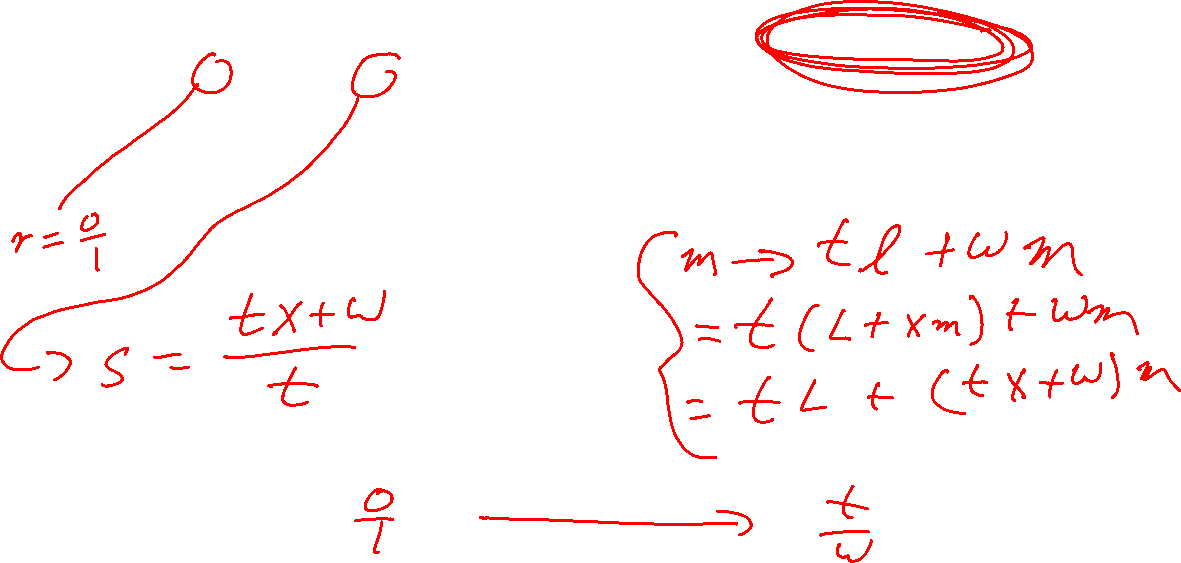 r = 0/1
s = (tx+w)/t
m → tl + wm
= t(L + xm) + wm
= tL + (tx+w)m
0/1 → t/w